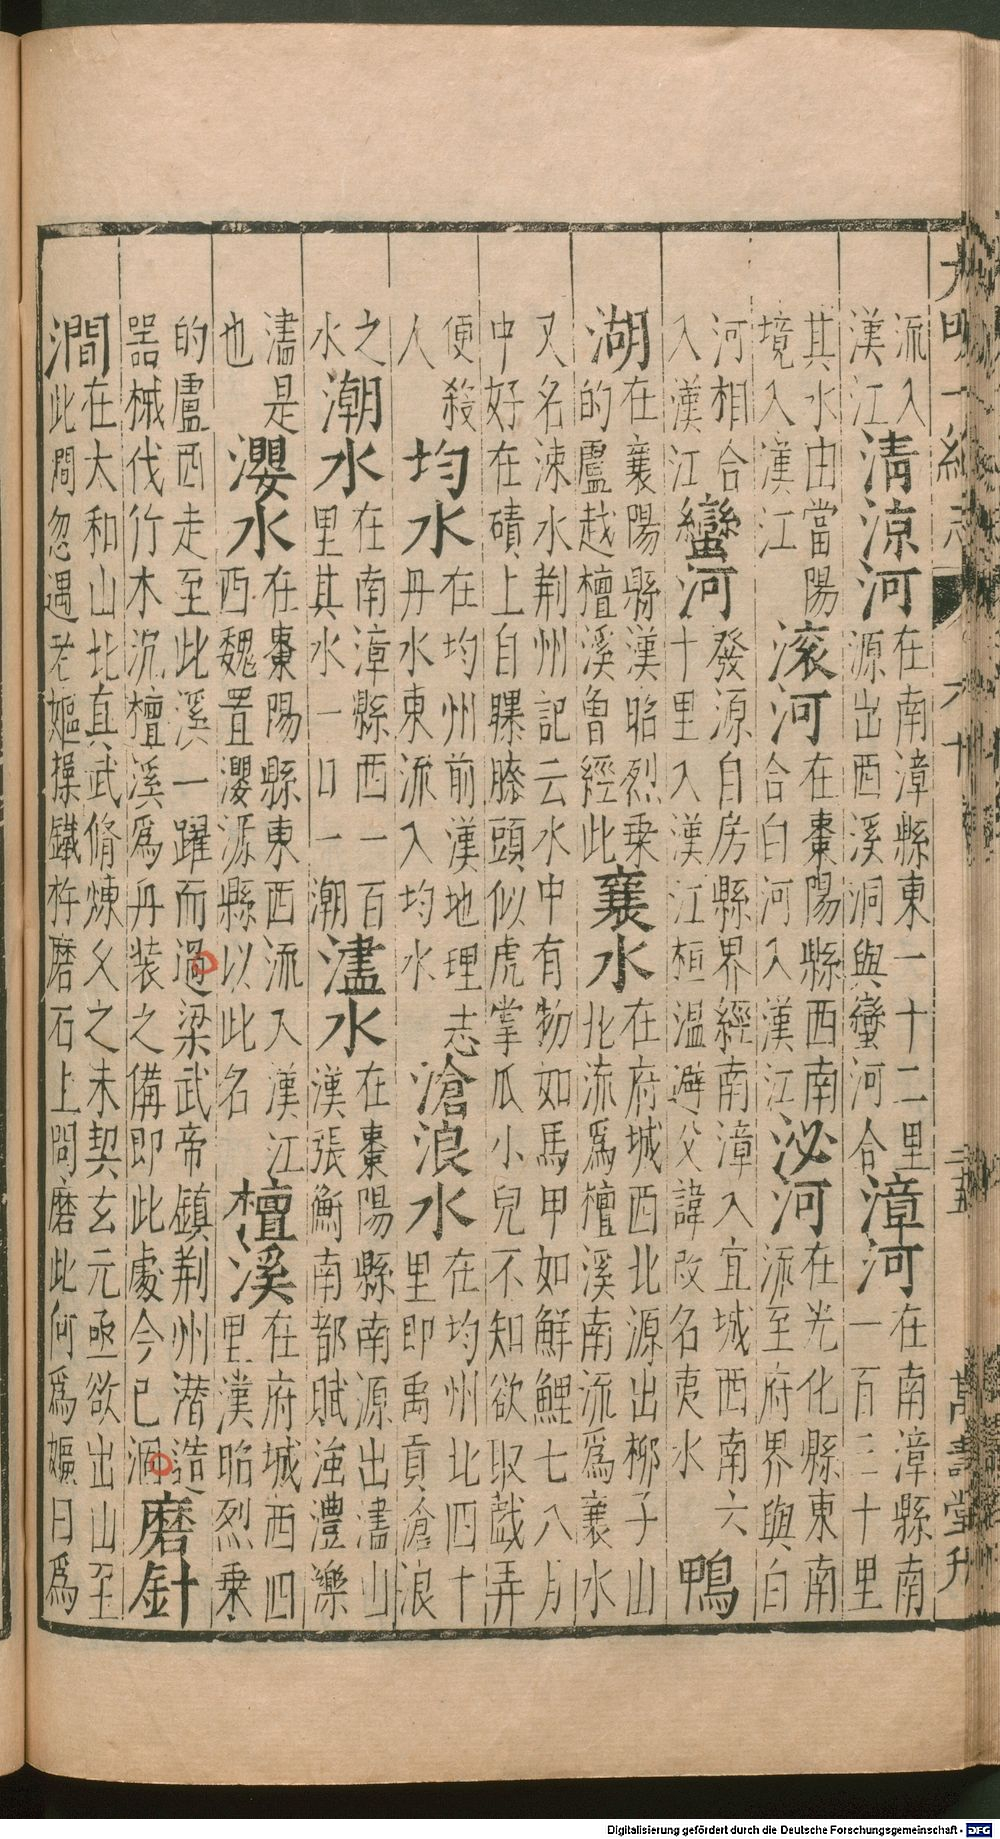 大明一統志 六十卷 二五 萬壽堂刋
流入漢江 清涼河 在南漳縣東一十二里源出酉溪洞與蠻河合 漳河 在南漳縣南一百三十里
其水由當陽境入漢江 滚河 在棗陽縣西南合白河入漢江 泌河 在光化縣東南流至府界與白
河相合入漢江 蠻河 發源自房縣界經南漳入宜城西南六十里入漢江桓温避父諱改名夷水 鴨
湖 在襄陽縣漢昭烈乗的盧越檀溪曽經此 襄水 在府城西北源出柳子山北流爲檀溪南流爲襄水
又名涑水荆州記云水中有物如馬甲如鮮鯉七八月中好在磧上自曝膝頭似虎掌爪小兒不知欲取戯弄
便殺人 均水 在均州前漢地理志丹水東流入均水 滄浪水 在均州北四十里即禹貢滄浪
之水 潮水 在南漳縣西一百里其水一日一潮 濜水 在棗陽縣南源出濜山漢張衡南都賦澧濼
濜是也 瀴水 在棗陽縣東西流入漢江西魏置瀴源縣以此名 檀溪 在府城西四里漢昭烈乗
的盧西走至此溪一躍而過梁武帝鎮荆州潜造器械伐竹木沉檀溪爲丹装之備即此處今已涸 磨針
澗 在太和山北真武脩煉久之未契玄元亟欲出山至此澗忽遇老嫗操鐵杵磨石上問磨此何爲嫗曰爲
Digitalisierung gefördert durch die Deutsche Forschungsgemeinschaft - DFG